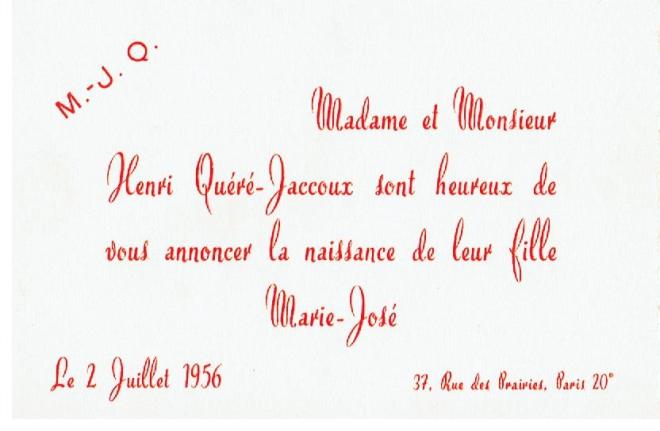 M.-J. Q.
Madame et Monsieur
Henri Quéré-Jaccoux sont heureux de
vous annoncer la naissance de leur fille
Marie-José
Le 2 Juillet 1956
37, Rue des Prairies, Paris 20°